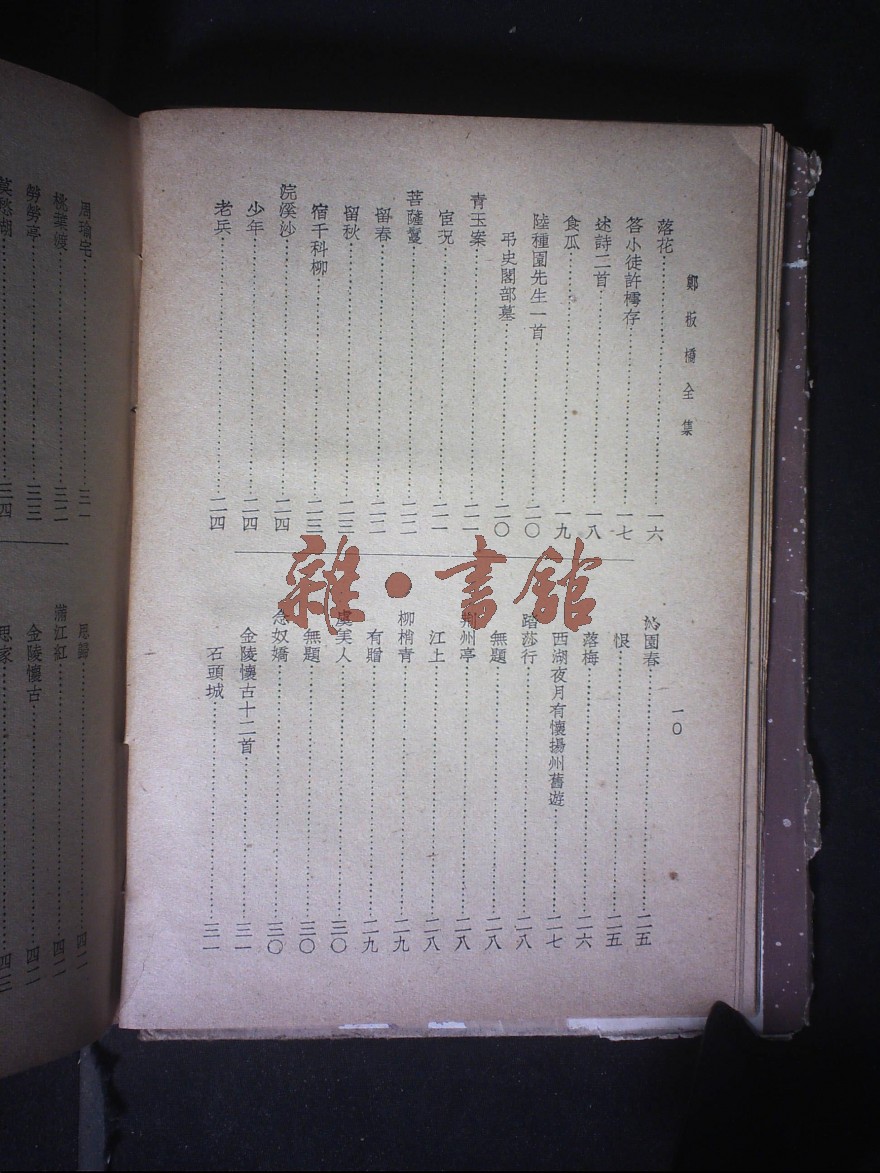 鄭板橋全集
一〇
落花⋯⋯一六
答小徒許樗存⋯⋯一七
述詩二首⋯⋯一八
食瓜⋯⋯一九
陸種園先生一首⋯⋯二〇
弔史閣部墓⋯⋯二〇
青玉案⋯⋯二一
宦況⋯⋯二一
菩薩蠻⋯⋯二二
留春⋯⋯二二
留秋⋯⋯二三
宿千科柳⋯⋯二三
浣溪沙⋯⋯二四
少年⋯⋯二四
老兵⋯⋯二四
沁園春⋯⋯二五
恨⋯⋯二五
落梅⋯⋯二六
西湖夜月有懷揚州舊遊⋯⋯二七
踏莎行⋯⋯二八
無題⋯⋯二八
荆州亭⋯⋯二八
江上⋯⋯二八
柳梢青⋯⋯二九
有贈⋯⋯二九
虞美人⋯⋯三〇
無題⋯⋯三〇
念奴嬌⋯⋯三〇
金陵懷古十二首⋯⋯三一
石頭城⋯⋯三一
周瑜宅⋯⋯三一
桃葉渡⋯⋯三二
勞勞亭⋯⋯三三
莫愁湖⋯⋯三四
思歸⋯⋯四一
滿江紅⋯⋯四一
金陵懷古⋯⋯四二
思家⋯⋯四三
雜·書館